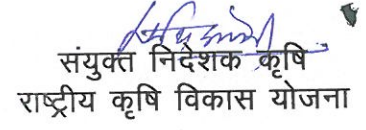 संयुक्त निदेशक कृषि
राष्ट्रीय कृषि विकास योजना